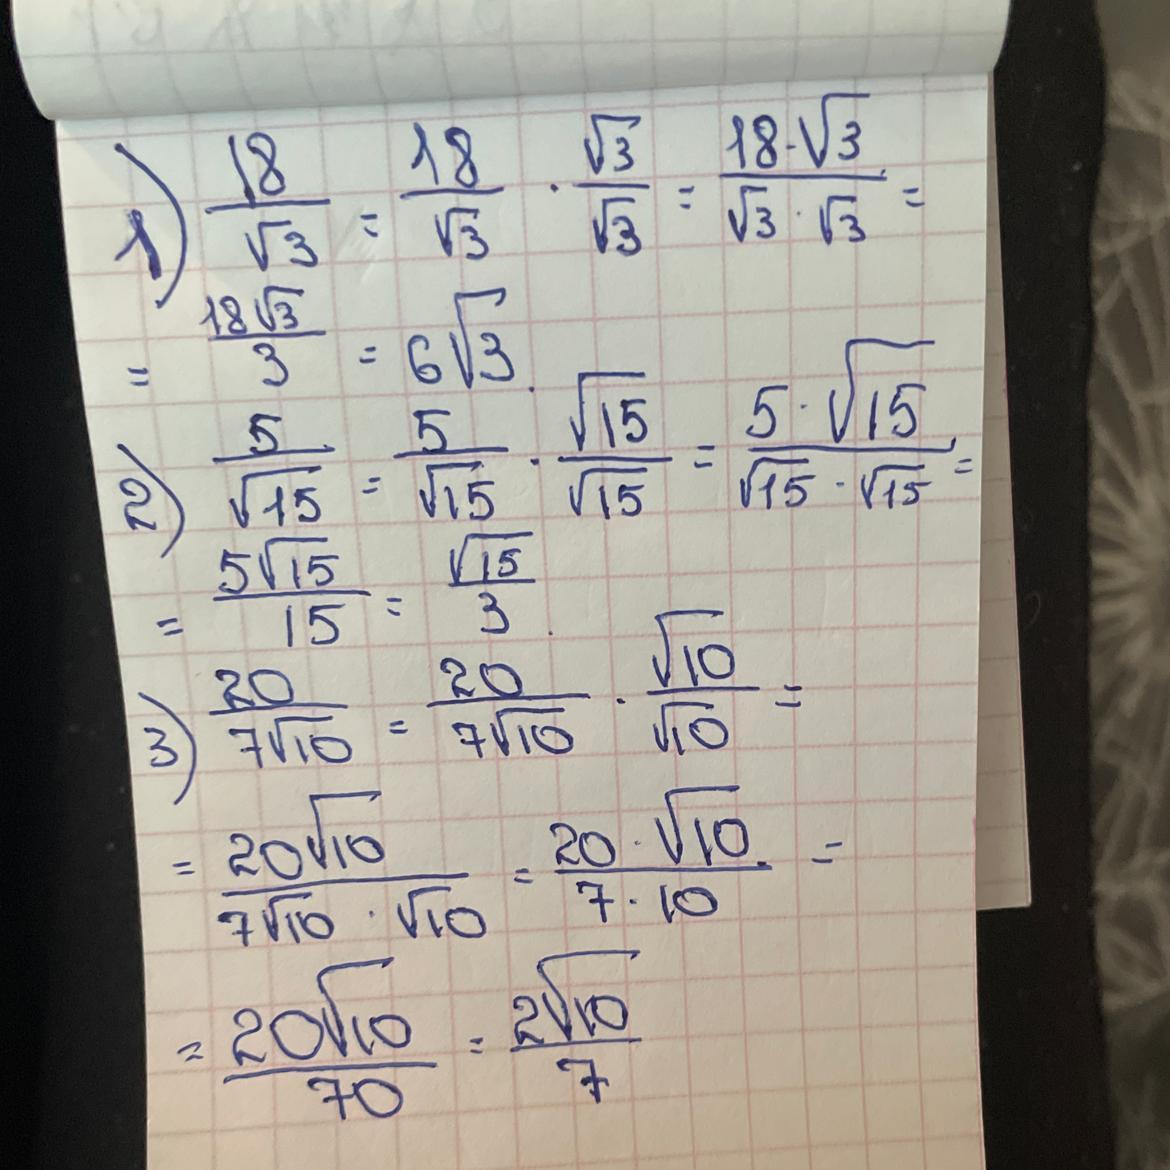 1) 18/√3 = 18/√3 · √3/√3 = 18·√3/√3·√3 =
= 18√3/3 = 6√3.
2) 5/√15 = 5/√15 · √15/√15 = 5·√15/√15·√15 =
= 5√15/15 = √15/3.
3) 20/7√10 = 20/7√10 · √10/√10 =
= 20√10/7√10·√10 = 20·√10/7·10 =
= 20√10/70 = 2√10/7